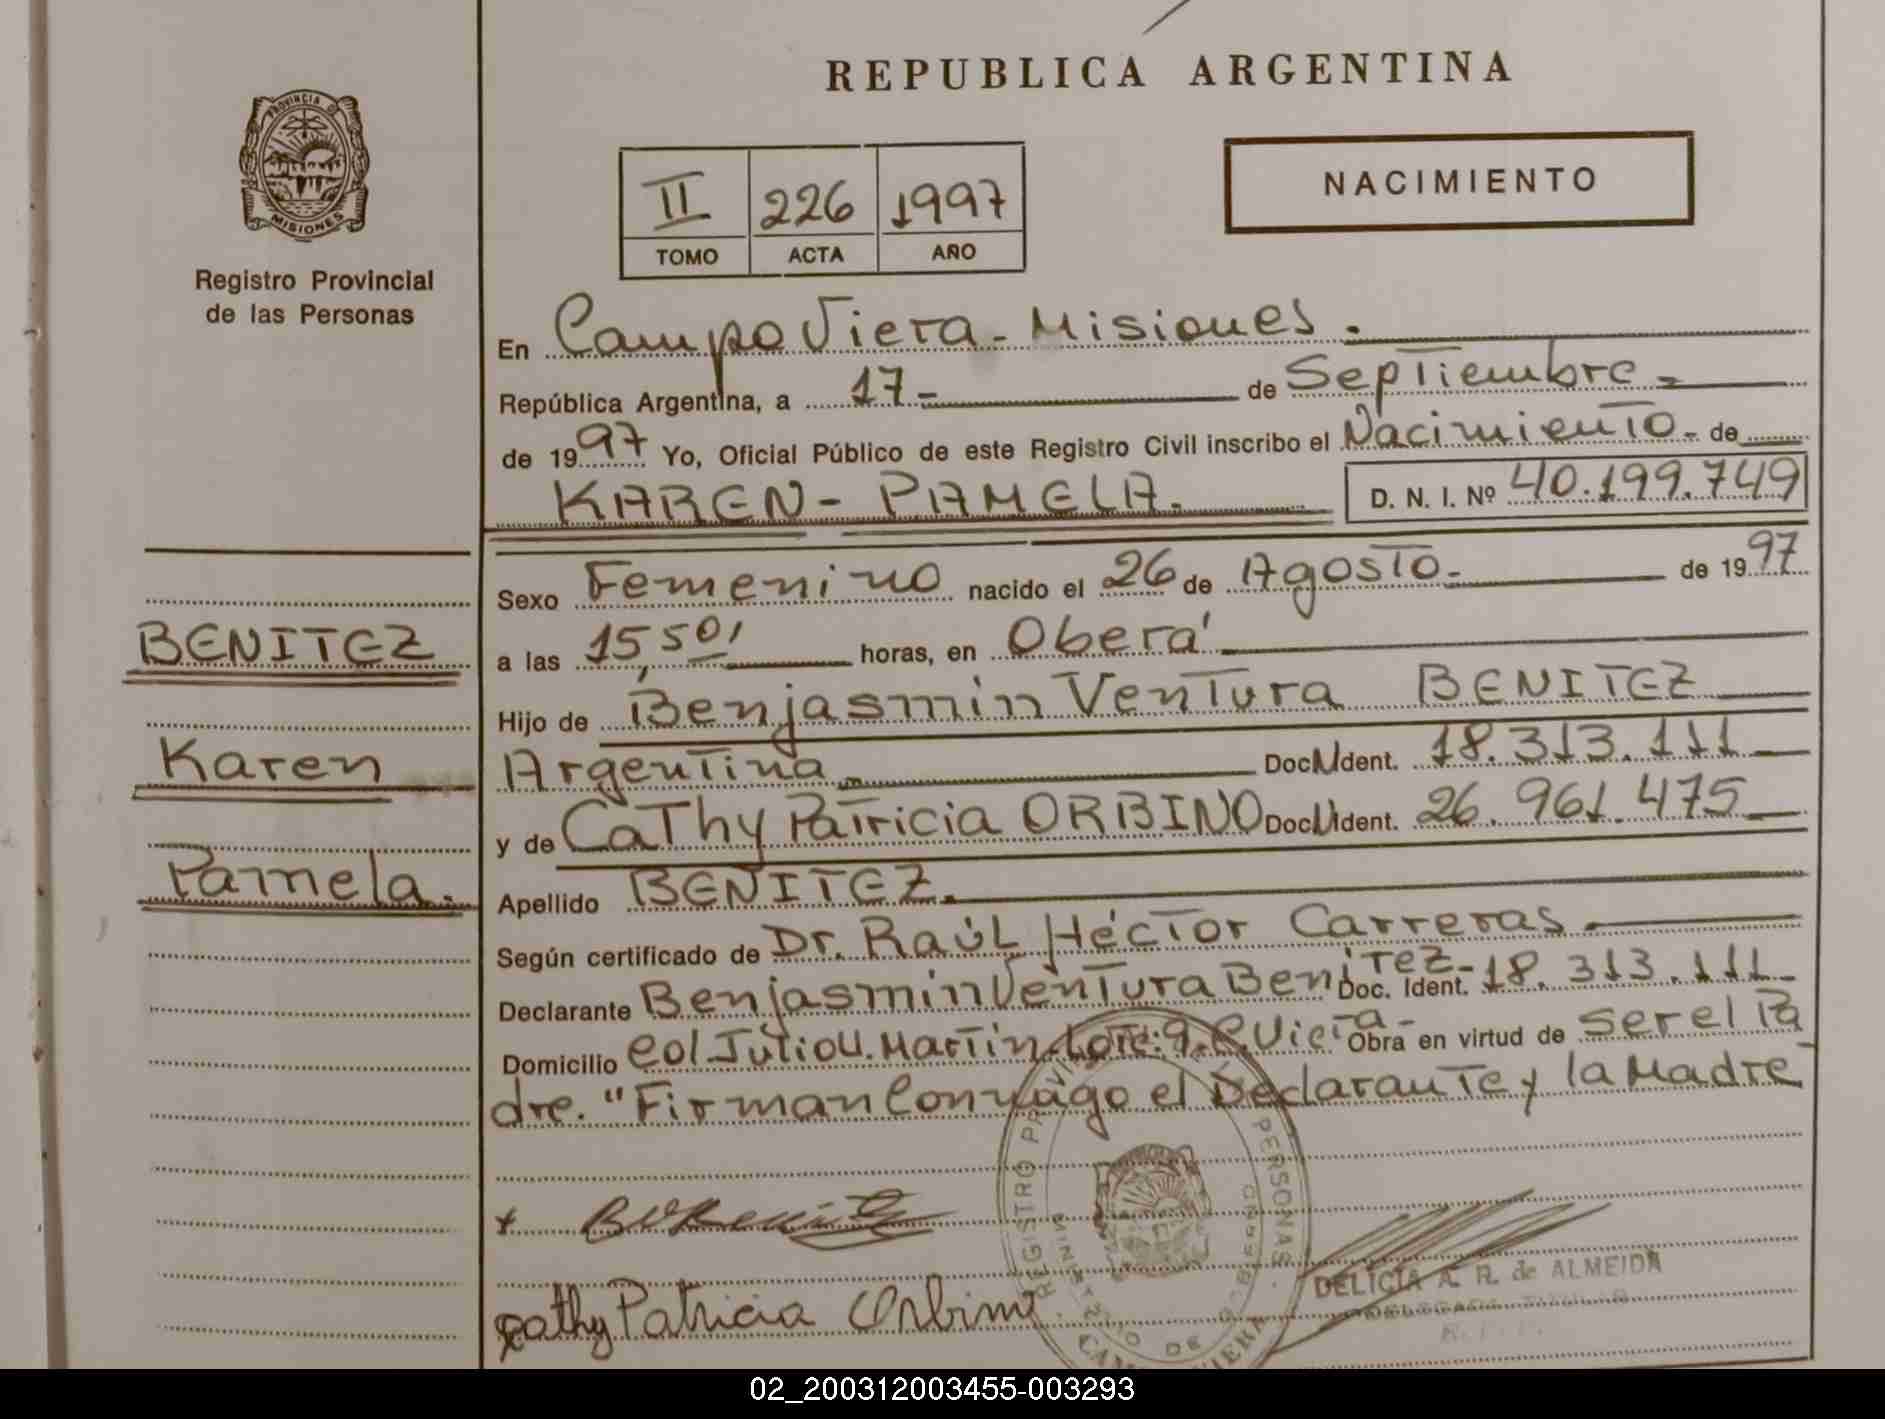 REPUBLICA ARGENTINA
PROVINCIA DE
MISIONES
Registro Provincial
de las Personas
NACIMIENTO
II 226 1997
TOMO ACTA AÑO
En Campo Viera - Misiones.
República Argentina, a 17 - de Septiembre -
de 1997 Yo, Oficial Público de este Registro Civil inscribo el Nacimiento - de
KAREN - PAMELA. D. N. I. Nº 40.199.749
Sexo Femenino nacido el 26 de Agosto - de 1997
a las 15,50, horas, en Oberá
Hijo de Benjasmin Ventura BENITEZ
Argentina Doc. N Ident. 18.313.111
y de Cathy Patricia ORBINO Doc. N Ident. 26.961.475
Apellido BENITEZ.
Según certificado de Dr. Raúl Héctor Carreras
Declarante Benjasmin Ventura Benitez - Doc. Ident. 18.313.111
Domicilio Col Julio U. Martin - Lote: 9. C. Viera - Obra en virtud de ser el Pa
dre. "Firman Conmigo el Declarante y la Madre
BENITEZ
Karen
Pamela.
Cathy Patricia Orbino
REGISTRO PERSONAS
MINISTERIO DE GOBIERNO
CAMPO VIERA
DELICIA A. R. de ALMEIDA
DELEGADA TITULAR
R. P. P.
02_200312003455-003293